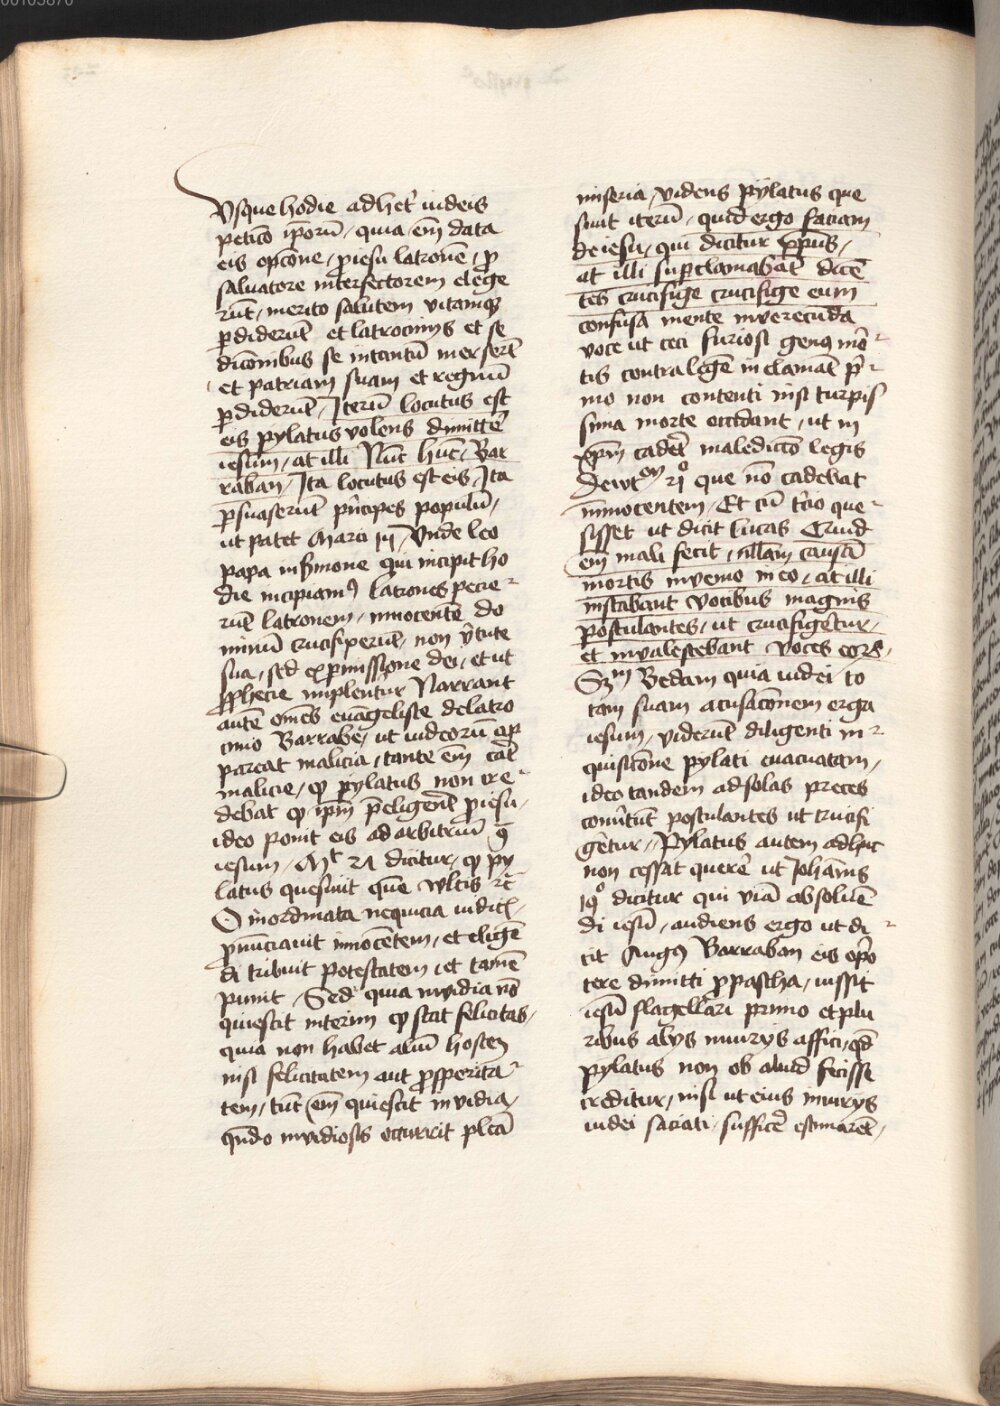 Vsque hodie adhet' iudeis
peticō ip̄orū / quia em̄ data
eis opcōne / ꝓ iesu latronē / ꝓ
saluatore interfectorem elege
rūt / merito salutem vitamqꝫ
ꝑdiderūt et latrocinijs et se
dicōnibus se intantū merserūt
et patriam suam et regnū
ꝑdiderūt / Iterū locutus est
eis pylatus volens dimitte͛
iesum / at illi Nūc hūc / Bar
raban / Ita locutus est eis / Ita
ꝑsuaserūt pn̄cipes populū /
ut patet Marci
papa in sermone qui incipit ho
die incipiamꝰ latrones pecie
rūt latronem / innocentē do
minū crucifixerūt / non v̓tute
sua / sed ex ꝑmissione dei / et ut
ꝓphecie implentur Narrant
autē om̄es euāgeliste de latro
cinio Barrabe / ut iudeorū ap
pareat malicia / tante em̄
malicie / ꝙ pylatus non cre
debat ꝙ ip̄m p̄eligerēt ꝓ iesu /
ideo ponit eis ad arbitriū
iesum / Mt 27 dicitur / ꝙ py
latus quesiuit quē vltis ⁊c̄
O inordinata nequicia iudicis
ꝓnūciauit innocētem / et eligē
di tribuit potestatem et tamē
punit / Sed quia inuidia nō
quiescit interim ꝙ stat felicitas /
quia non habet aliū hostem
nisi felicitatem aut ꝓsperita
tem / tūc em̄ quiescit inuidia /
qn̄do inuidiosis occurrit plena
miseria / videns pylatus que
siuit iterū / quid ergo faciam
de iesu / qui dicitur xp̄us /
at illi suꝑclamabāt dicē
tes crucifige crucifige eum
confusa mente inverecūda
voce ut ceci furiosi genꝰ mor
tis contra legē inclamāt pri
mo non contenti nisi turpis
sima morte occidant / ut in
xp̄m cade͛t maledictō legis
Dewt 21º que nō cadebat
innocentem / Et cū t'cio que
sisset ut dicit Lucas Quid
em̄ mali fecit / nllam causā
mortis invenio in eo / at illi
instabant vocibus magnis
postulantes / ut crucifigeretur /
et invalescebant voces eorū /
Scdm Bedam quia iudei to
tam suam accusacōnem erga
iesum / viderūt diligenti in
quisitōne pylati euacuatam /
ideo tandem ad solas preces
conu͛tūt postulantes ut crucifi
ge͛tur / Pylatus autem adhuc
non cessat querē͛ ut Johānis
19º dicitur qui viā absoluē
di iesū / audiens ergo ut di
cit Augꝰ Barraban eis opor
tere dimitti ꝓ pascha / iussit
iesū flagellari primo et plu
ribus alijs iniurijs affici / qd̄
pylatus non ob aliud fecisse
creditur / nisi ut eius iniurijs
iudei saciati / suffice͛ estimarēt /